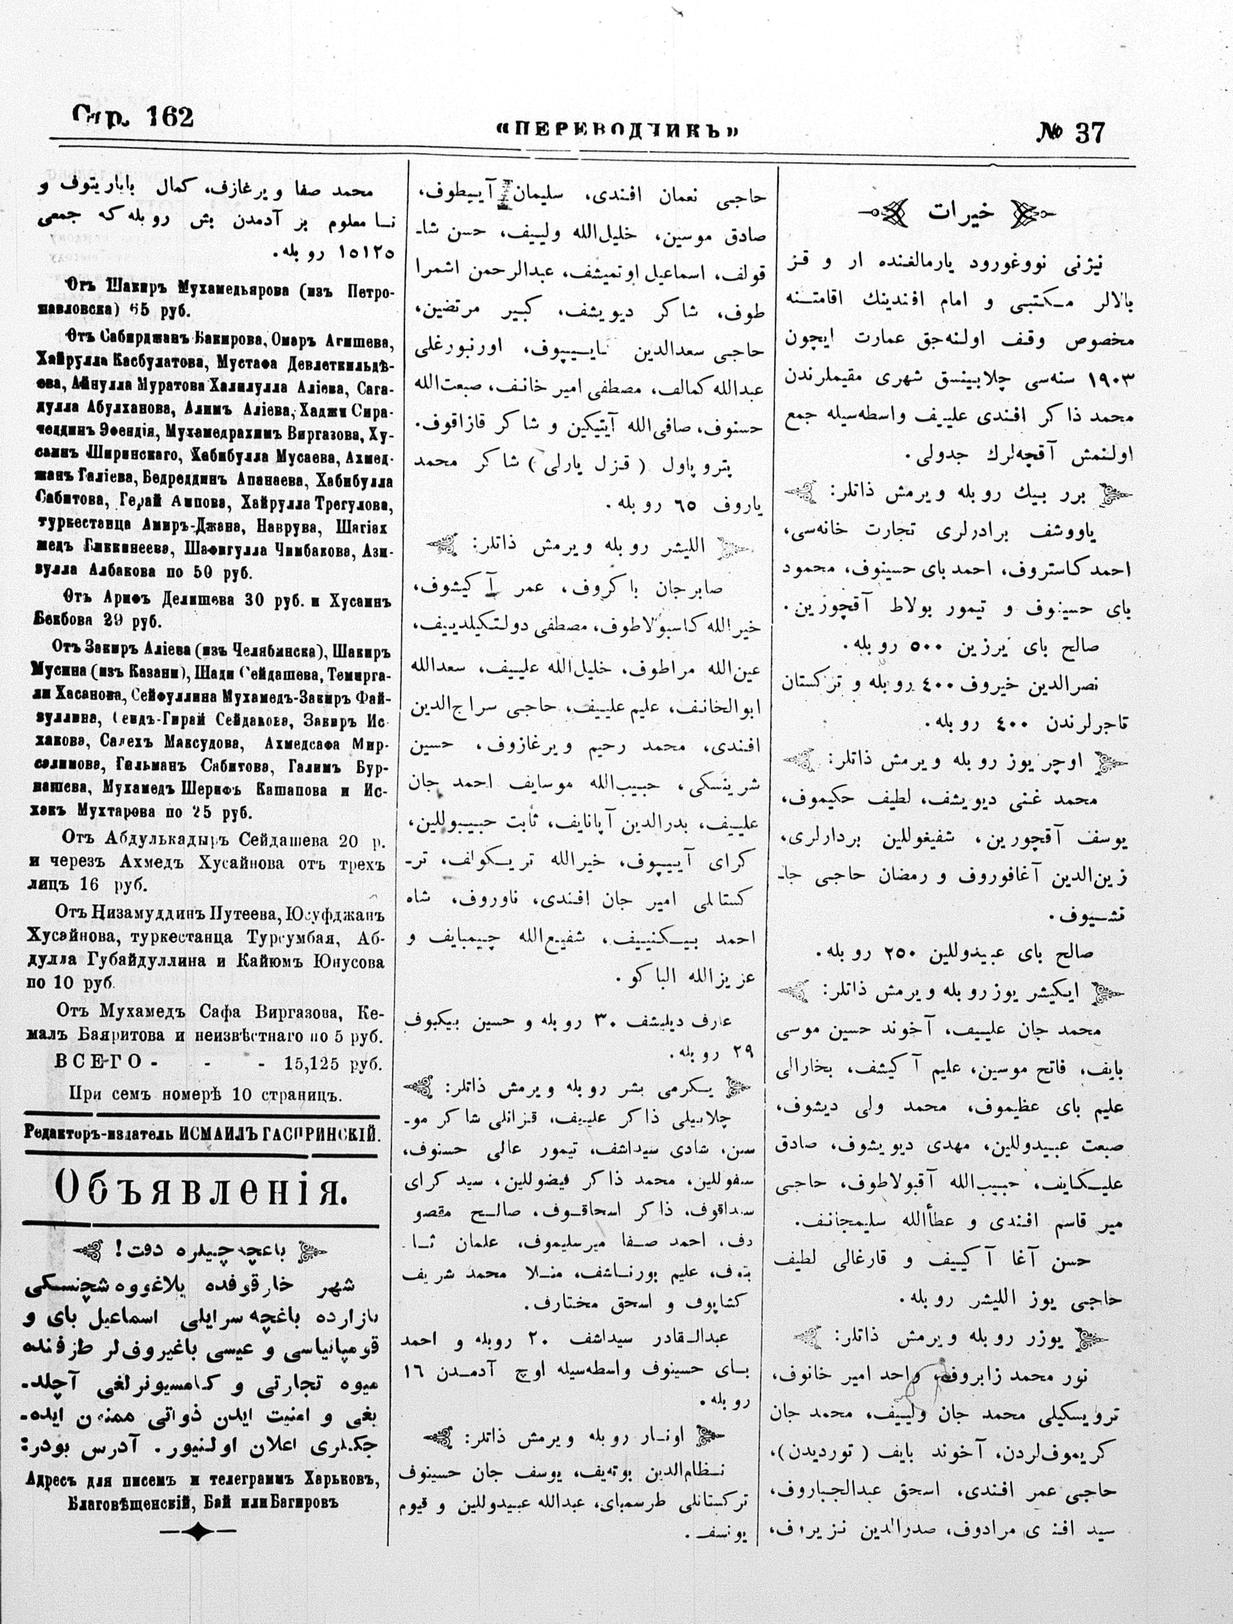 Стр. 162
«ПЕРЕВОДЧИКЪ»
№ 37
خيرات
نيژنى نووغورود يارمالغنده ار و قز
بالالر مكتبى و امام افندينك اقامتنه
مخصوص وقف اولنه‌جق عمارت ايچون
١٩٠٣ سنه‌سى چلابينسق شهرى مقيملرندن
محمد ذاكر افندى علييف واسطه‌سيله جمع
اولنمش آقچه‌لرك جدولى.
برر بيك روبله ويرمش ذاتلر:
ياووشف برادرلرى تجارت خانه‌سى،
احمد كاستروف، احمد باى حسينوف، محمود
باى حسينوف و تيمور بولاط آقچورين.
صالح باى يرزين ٥٠٠ روبله.
نصرالدين خيروف ٤٠٠ روبله و تركستان
تاجرلرندن ٤٠٠ روبله.
اوچر يوز روبله ويرمش ذاتلر:
محمد غنى ديويشف، لطيف حكيموف،
يوسف آقچورين، شفيغوللين بردارلرى،
زين‌الدين آغافوروف و رمضان حاجى جا-
نشيوف.
صالح باى عبيدوللين ٢٥٠ روبله.
ايكيشر يوز روبله ويرمش ذاتلر:
محمد جان علييف، آخوند حسين موسى
بايف، فاتح موسين، عليم آكيشف، بخارالى
عليم باى عظيموف، محمد ولى ديشوف،
صبعت عبيدوللين، مهدى ديويشوف، صادق
عليكايف، حبيب‌الله آقبولاطوف، حاجى
مير قاسم افندى و عطأالله سليمجانف.
حسن آغا آكييف و قارغالى لطيف
حاجى يوز الليشر روبله.
يوزر روبله ويرمش ذاتلر:
نور محمد زابروف، واحد امير خانوف،
ترويسكيلى محمد جان ولييف، محمد جان
كريموف‌لردن، آخوند بايف (توردیدن)،
حاجى عمر افندى، اسحق عبدالجباروف،
سيد افندى مرادوف، صدرالدين نزيروف،
حاجى نعمان افندى، سليمان آييطوف،
صادق موسين، خليل‌الله ولييف، حسن شا-
قولف، اسماعيل اوتميشف، عبدالرحمن اشمرا
طوف، شاكر ديويشف، كبير مرتضين،
حاجى سعدالدين نايسيپوف، اورنبورغلى
عبدالله كمالف، مصطفى امير خانف، صبعت‌الله
حسنوف، صافى‌الله آيتيكين و شاكر قازاقوف.
پتروپاول (قزل يارلى) شاكر محمد
ياروف ٦٥ روبله.
الليشر روبله ويرمش ذاتلر:
صابرجان باكروف، عمر آكيشوف،
خيرالله كاسبولاطوف، مصطفى دولتكيلدييف،
عين‌الله مراطوف، خليل‌الله علييف، سعدالله
ابوالخانف، عليم علييف، حاجى سراج‌الدين
افندى، محمد رحيم ويرغازوف، حسين
شرينسكى، حبيب‌الله موسايف احمد جان
علييف، بدرالدين آپانايف، ثابت حبيبوللين،
كراى آييپوف، خيرالله تريكولف، تر-
كستانلى امير جان افندى، ناوروف، شاه
احمد بيكنييف، شفيع‌الله چيمبايف و
عزيزالله الباكو.
عارف ديليشف ٣٠ روبله و حسين بيكبوف
٢٩ روبله.
يكرمى بشر روبله ويرمش ذاتلر:
چلابيلى ذاكر علييف، قزانلى شاكر مو-
سن، شادى سيداشف، تيمور عالى حسنوف،
سفوللين، محمد ذاكر فيضوللين، سيد كراى
سيداقوف، ذاكر اسحاقوف، صالح مقصو
دف، احمد صفا ميرسليموف، علمان ثا-
بتوف، عليم بورناشف، منلا محمد شريف
كشاپوف و اسحق مختارف.
عبدالقادر سيداشف ٢٠ روبله و احمد
باى حسينوف واسطه‌سيله اوچ آدمدن ١٦
روبله.
اونار روبله ويرمش ذاتلر:
نظام‌الدين بوتييف، يوسف جان حسينوف
تركستانلى طرسمباى، عبدالله عبيدوللين و قيوم
يونسف.
محمد صفا ويرغازف، كمال باياريتوف و
نا معلوم بر آدمدن بش روبله كه جمعى
١٥١٢٥ روبله.
Отъ Шакиръ Мухамедьярова (изъ Петро-
павловска) 65 руб.
Отъ Сабирджанъ Бакирова, Омаръ Агишева,
Хайрулла Касбулатова, Мустафа Девлеткильдѣ-
ева, Айнулла Муратова Халилулла Аліева, Сага-
дулла Абулханова, Алимъ Аліева, Хаджи Сира-
чеддинъ Эфендія, Мухамедрахимъ Виргазова, Ху-
саинъ Ширинскаго, Хабибулла Мусаева, Ахмед-
жанъ Галіева, Бедреддинъ Апанаева, Хабибулла
Сабитова, Герай Аипова, Хайрулла Трегулова,
туркестанца Амиръ-Джана, Наврува, Шагіах
медъ Биккинеева, Шафигулла Чимбакова, Ази-
зулла Албакова по 50 руб.
Отъ Арифъ Делишева 30 руб. и Хусаинъ
Бекбова 29 руб.
Отъ Закиръ Аліева (изъ Челябинска), Шакиръ
Мусина (изъ Казани), Шади Сейдашева, Темирга-
ли Хасанова, Сейфуллина Мухамедъ-Закиръ Фай-
зуллина, Сеидъ-Гирай Сейдакова, Закиръ Ис
хакова, Салехъ Максудова, Ахмедсафа Мир-
салимова, Гильманъ Сабитова, Галимъ Бур-
нашева, Мухамедъ Шерифъ Кашапова и Ис-
хакъ Мухтарова по 25 руб.
Отъ Абдулькадыръ Сейдашева 20 р.
и черезъ Ахмедъ Хусайнова отъ трехъ
лицъ 16 руб.
Отъ Низамуддинъ Путеева, Юсуфджанъ
Хусайнова, туркестанца Турсумбая, Аб-
дулла Губайдуллина и Кайюмъ Юнусова
по 10 руб.
Отъ Мухамедъ Сафа Виргазова, Ке-
малъ Баяритова и неизвѣстнаго по 5 руб.
ВСЕГО - - - 15,125 руб.
При семъ номерѣ 10 страницъ.
Редакторъ-издатель ИСМАИЛЪ ГАСПРИНСКІЙ.
Объявленія.
باغچه‌چيلره دقت!
شهر خارقوفده بلاغووه‌شچنسكى
بازارده باغچه‌سرايلى اسماعيل باى و
قومپانياسى و عيسى باغيروف‌لر طرفنده
ميوه تجارتى و كاميسيونرلغى آچلد-
يغى و امنيت ايدن ذواتى ممنون ايده-
جكلرى اعلان اولنيور. آدرس بودر:
Адресъ для писемъ и телеграммъ Харьковъ,
Благовѣщенскій, Бай или Багировъ